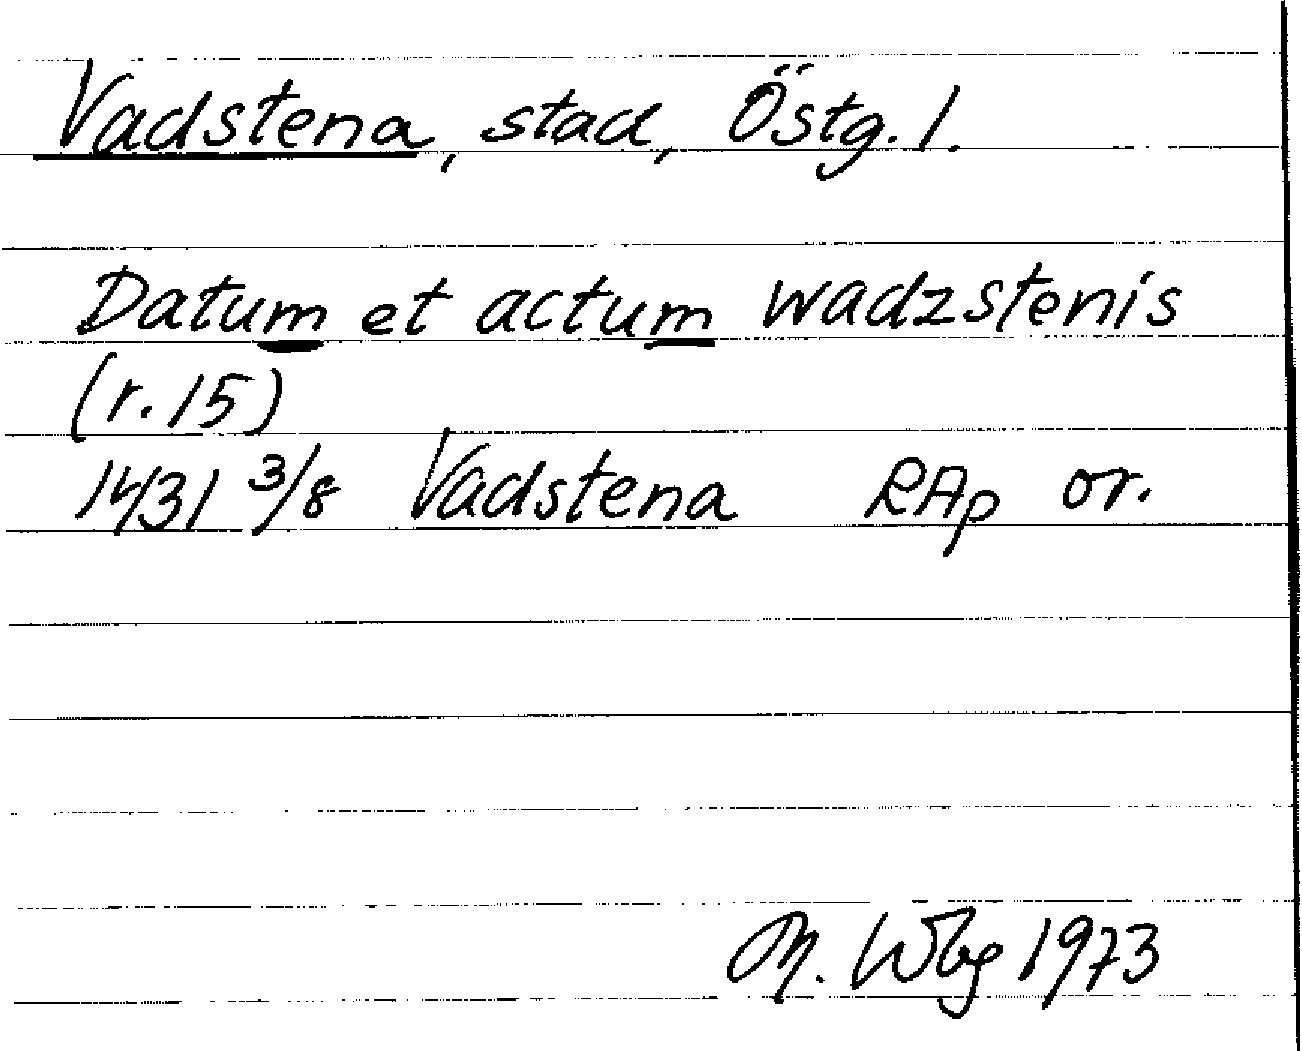 Vadstena, stad, Östg. l.
Datum et actum wadzstenis
(r. 15)
1431 3/8 Vadstena RAp or.
M. Wbg 1973